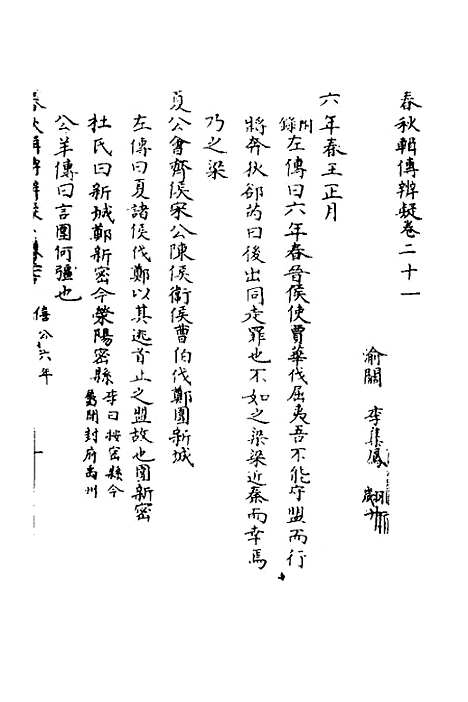 春秋輯傳辨疑卷二十一
渝關 李集鳳 翽升
六年春王正月
附錄左傳曰六年春晉侯使賈華伐屈夷吾不能守盟而行
將奔狄郤芮曰後出同走罪也不如之梁梁近秦而幸焉
乃之梁
夏公會齊侯宋公陳侯衛侯曹伯伐鄭圍新城
左傳曰夏諸侯伐鄭以其逃首止之盟故也圍新密
杜氏曰新城鄭新密今滎陽密縣 李曰按密縣今屬開封府禹州
公羊傳曰言圍何彊也
春秋輯傳辨疑
僖公六年
一